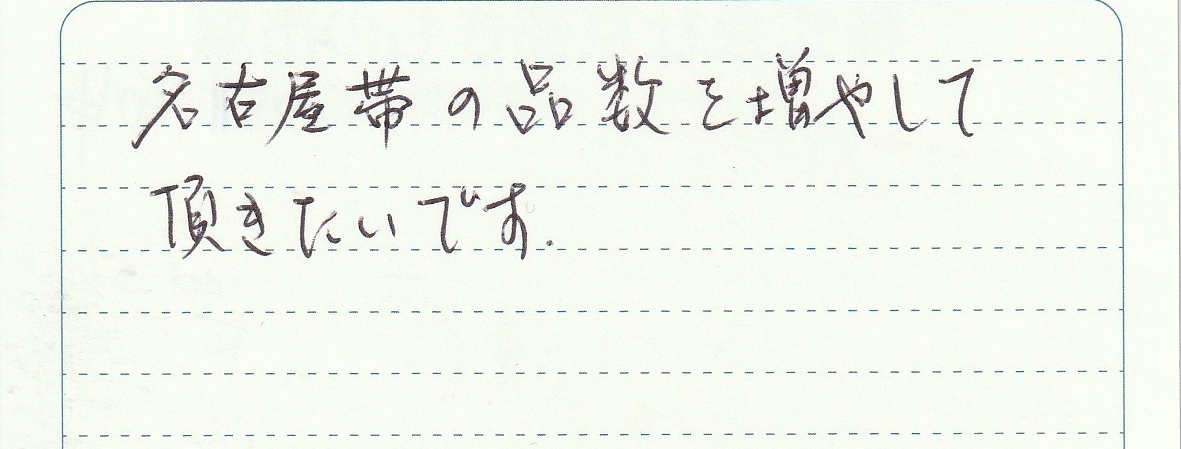 名古屋帯の品数を増やして
頂きたいです.